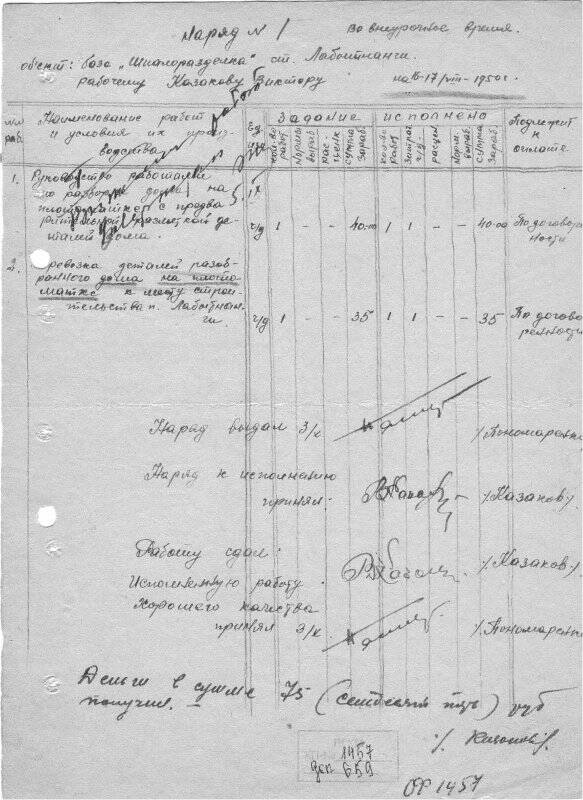 Наряд № 1
Во внеурочное время.
объект: база „Шпалоразделка" ст. Лабытнанги.
рабочему Казакову Виктору
на 16-17/VIII - 1950 г.
№№ раб.
Наименование работ
и условия их произ-
водства
Ед. изм
Задание
исполнено
Подлежит
к
оплате
кол-во работ
Нормы выраб.
Рас-ценк
сумма зараб.
кол-во работ
Затрач. ч/д
расцен
норм. выраб.
сумма зараб.
1. Руководство работами
по разборке дома на
площадке с предва
рительной разметкой де-
талей дома.
ч/д 1 - - 40-00 1 1 - - 40-00 По договор
ности
2. Перевозка деталей разоб-
ранного дома на плото
матке к месту строи-
тельства п. Лабытнан-
ги.
ч/д 1 - - 35 1 1 - - 35 По догово
ренности
Наряд выдал з/к
/Пономаренко
Наряд к исполнению
принял:
/Казаков/
Работу сдал:
/Казаков/
Исполненную работу
Хорошего качества
принял з/к.
/Пономаренко
Деньги в сумме 75 (семьдесят пять) руб
получил.
/Казаков/.
1457
659
ОФ 1457